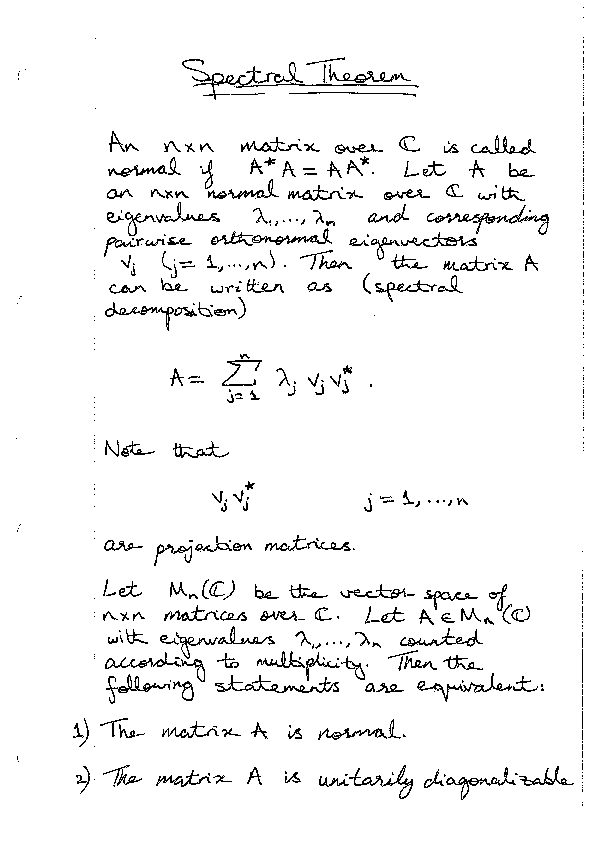 Spectral Theorem
An n×n matrix over ℂ is called
normal if A*A = AA*. Let A be
an n×n normal matrix over ℂ with
eigenvalues λ₁,...,λₙ and corresponding
pairwise orthonormal eigenvectors
vⱼ (j = 1,...,n). Then the matrix A
can be written as (spectral
decomposition)
A = ∑ⱼ₌₁ⁿ λⱼ vⱼvⱼ* .
Note that
vⱼvⱼ* j = 1,...,n
are projection matrices.
Let Mₙ(ℂ) be the vector space of
n×n matrices over ℂ. Let A ∈ Mₙ(ℂ)
with eigenvalues λ₁,...,λₙ counted
according to multiplicity. Then the
following statements are equivalent:
1) The matrix A is normal.
2) The matrix A is unitarily diagonalizable